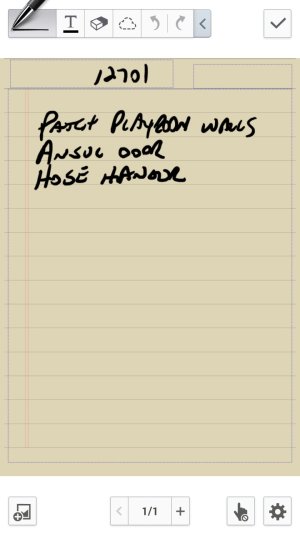 T
12701
PATCH PLAYROOM WALLS
ANSUL DOOR
HOSE HANGER
1/1